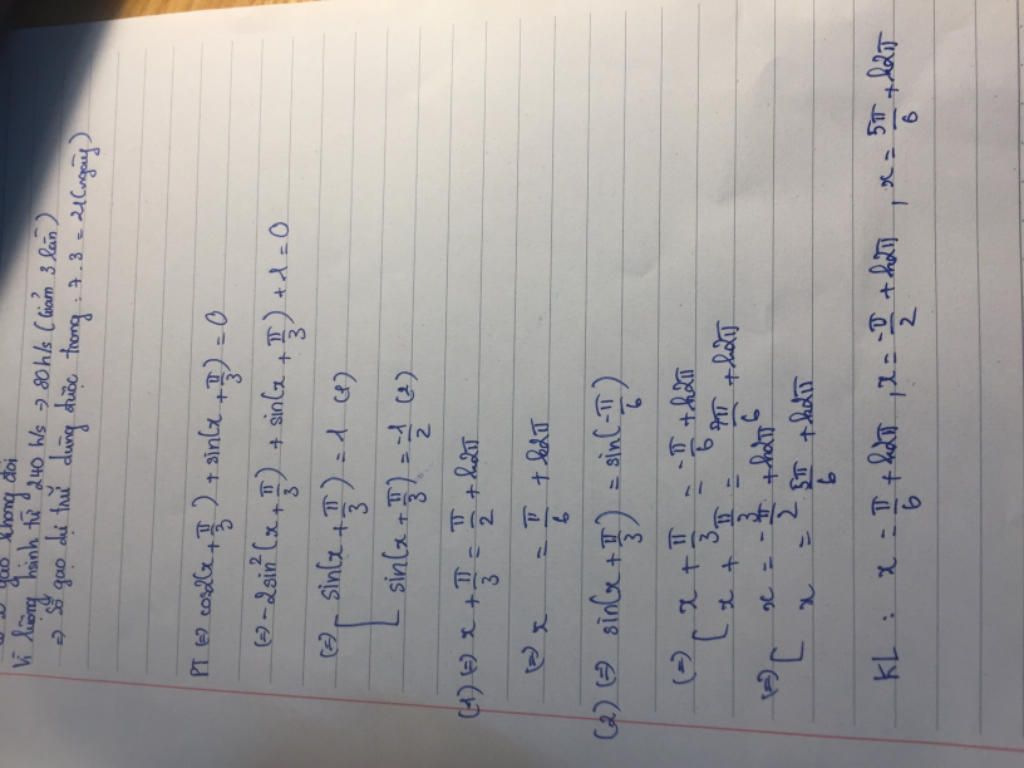 gạo không đổi
Vì lượng hành từ 240 h/s => 80 h/s (Giảm 3 lần)
=> Số gạo dự trữ dùng được trong: 7.3 = 21 (ngày)
PT (=) cos2(x + π/3) + sin(x + π/3) = 0
(=) -2sin²(x + π/3) + sin(x + π/3) + 1 = 0
(=) [ sin(x + π/3) = 1 (1)
sin(x + π/3) = -1/2 (2)
(1) (=) x + π/3 = π/2 + k2π
(=) x = π/6 + k2π
(2) (=) sin(x + π/3) = sin(-π/6)
(=) [ x + π/3 = -π/6 + k2π
x + π/3 = 7π/6 + k2π
(=) [ x = -π/2 + k2π
x = 5π/6 + k2π
KL: x = π/6 + k2π, x = -π/2 + k2π, x = 5π/6 + k2π